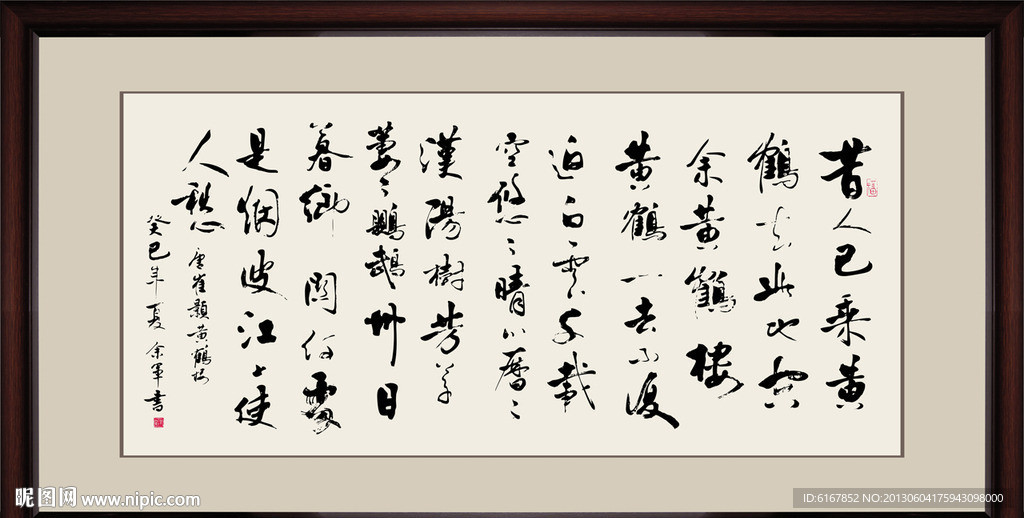 昔人已乘黄
鹤去此地空
余黄鹤楼
黄鹤一去不复
返白云千载
空悠悠晴川历历
汉阳树芳草
萋萋鹦鹉洲日
暮乡关何处
是烟波江上使
人愁
唐崔颢黄鹤楼
癸巳年夏余军书
昵图网 www.nipic.com
ID:6167852 NO:20130604175943098000